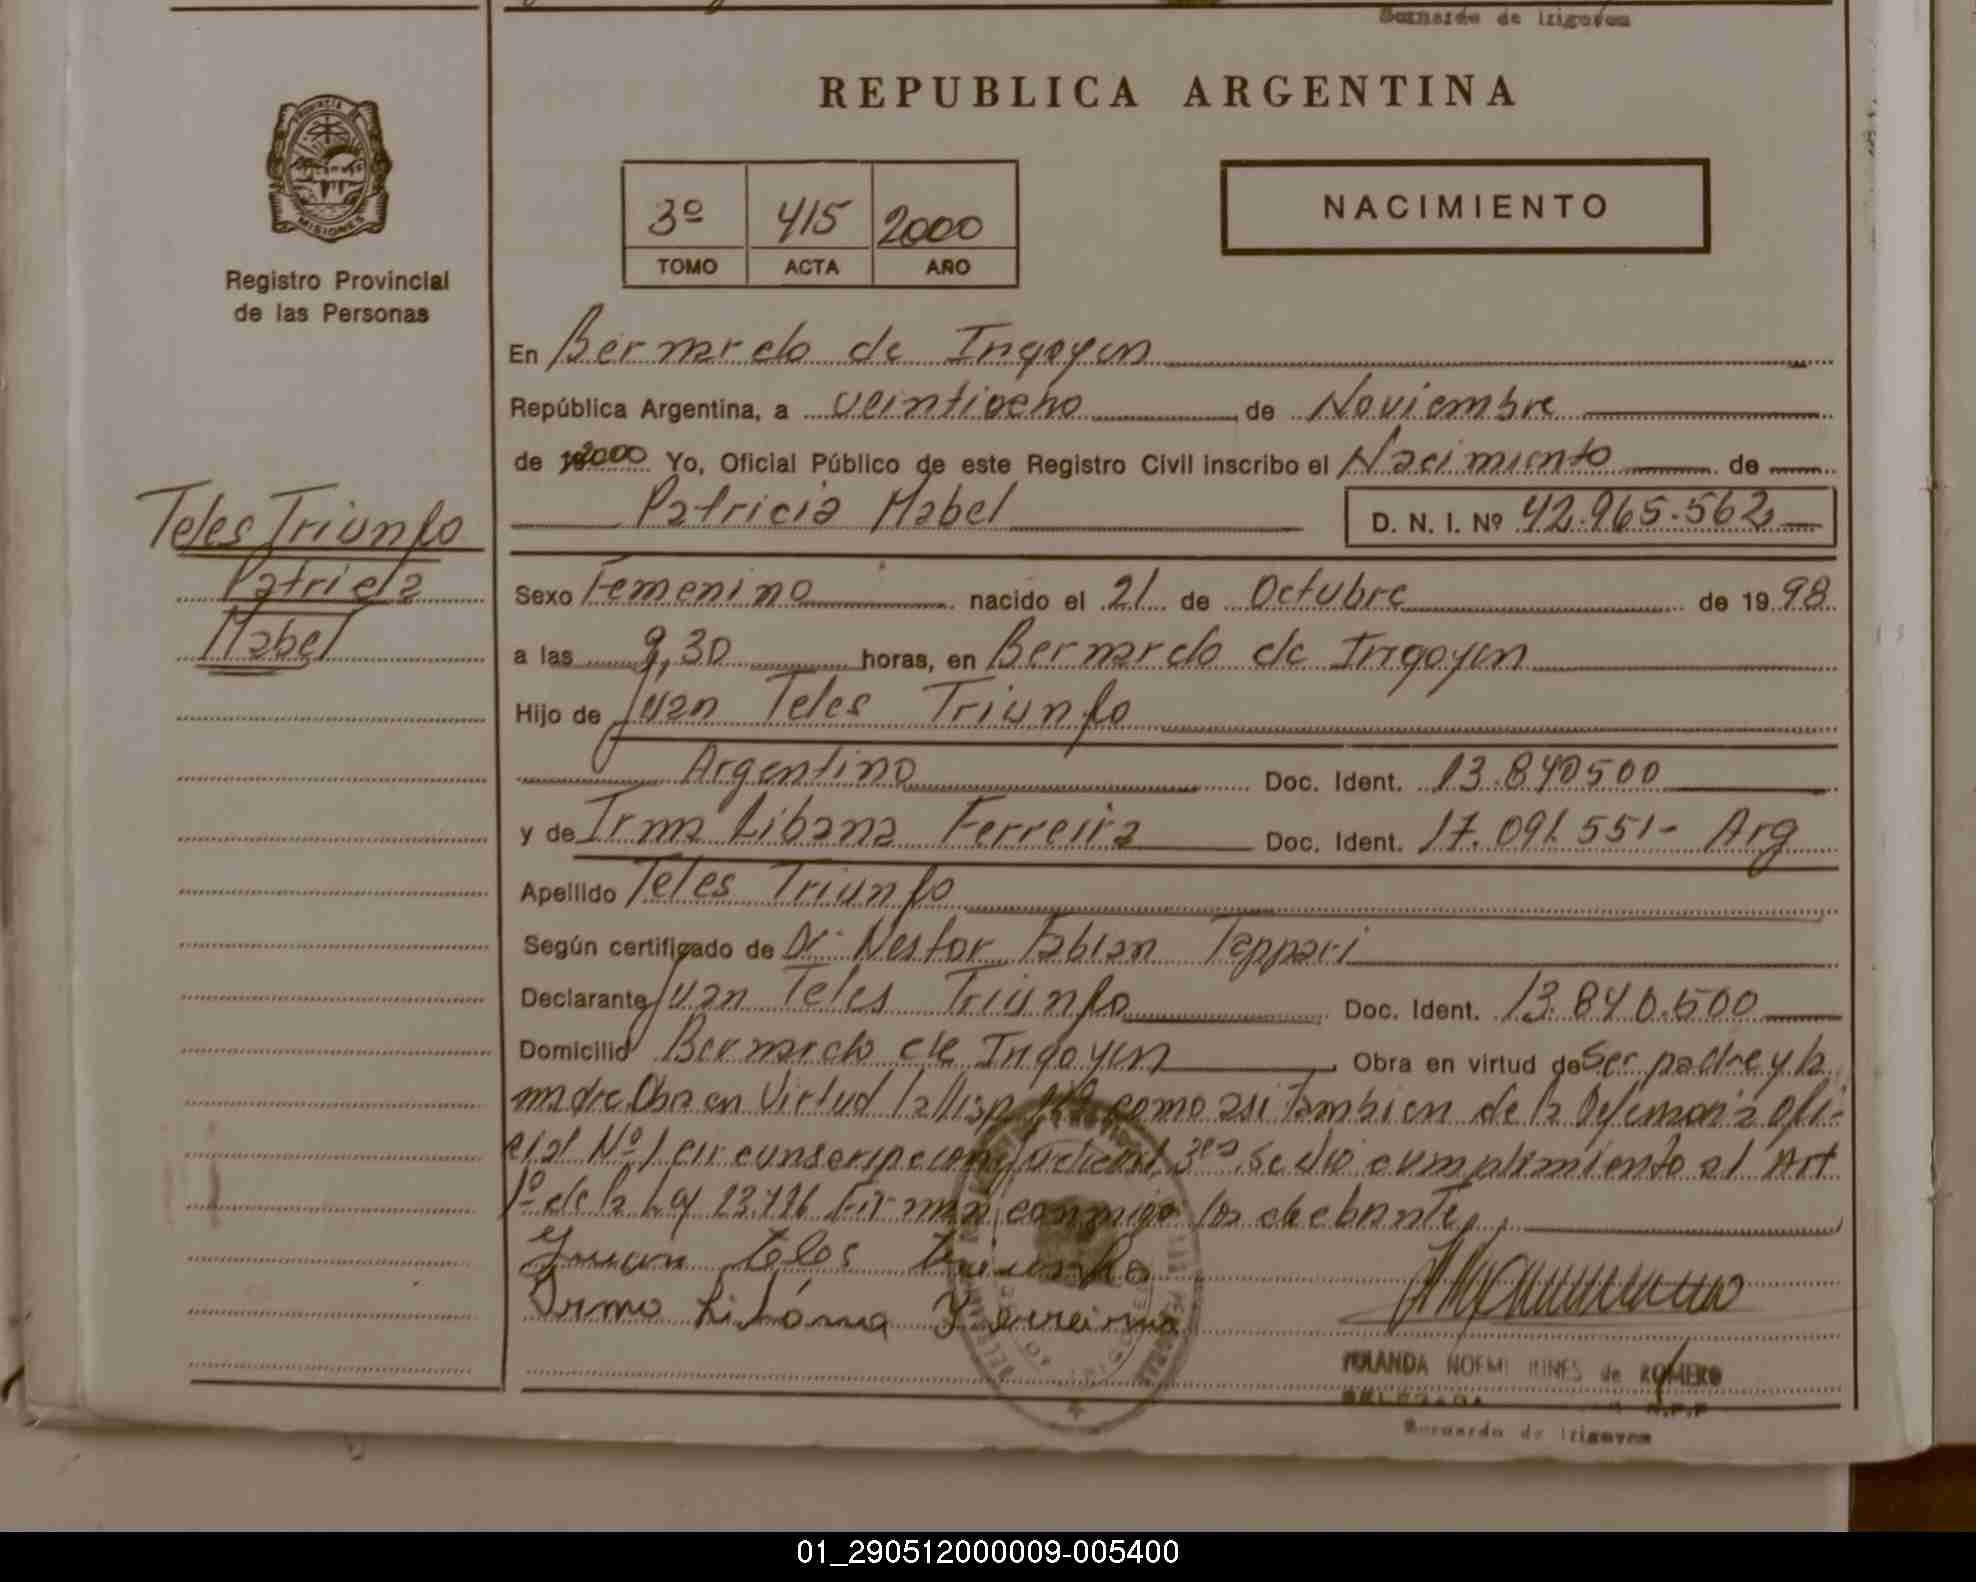 Bernardo de Irigoyen
REPUBLICA ARGENTINA
PROVINCIA DE
MISIONES
Registro Provincial
de las Personas
NACIMIENTO
3º 415 2000
TOMO ACTA AÑO
En Bernardo de Irigoyen
República Argentina, a veintiocho de Noviembre
de 2000 Yo, Oficial Público de este Registro Civil inscribo el Nacimiento de
Patricia Mabel D. N. I. Nº 42.965.562
Teles Triunfo
Patricia
Mabel
Sexo Femenino nacido el 21 de Octubre de 1998
a las 9,30 horas, en Bernardo de Irigoyen
Hijo de Juan Teles Triunfo
Argentino Doc. Ident. 13.840500
y de Irma Libana Ferreira Doc. Ident. 17.091.551- Arg
Apellido Teles Triunfo
Según certificado de Dr. Nestor Fabian Tappari
Declarante Juan Teles Triunfo Doc. Ident. 13.840.500
Domicilio Bernardo de Irigoyen Obra en virtud de Ser padre y la
madre Obra en Virtud la como asi tambien de la Defensoria ofi-
cial Nº1 circunscripcion Judicial 3ra. Se dio cumplimiento al Art
1º de la Ley Firman conmigo los
Juan teles triunfo
Irma Libána Ferreira
YOLANDA NOEMI de ROMERO
DELEGADA R.P.P
Bernardo de Irigoyen
01_290512000009-005400